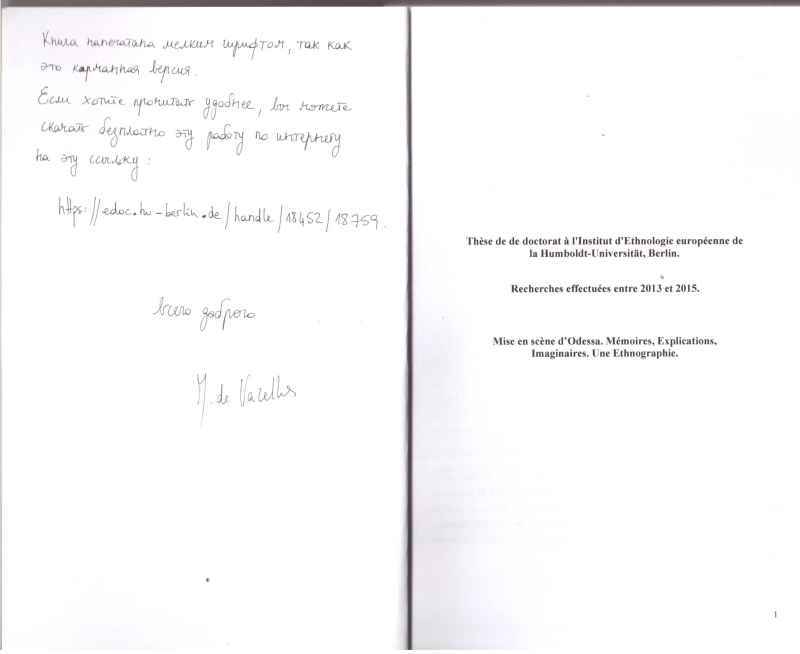 Книга напечатана мелким шрифтом, так как
это карманная версия.
Если хотите прочитать удобнее, вы можете
скачать безплатно эту работу по интернету
на эту ссылку:
https://edoc.hu-berlin.de/handle/18452/18759.
всего доброго
M. de Vazelhes
Thèse de de doctorat à l'Institut d'Ethnologie européenne de
la Humboldt-Universität, Berlin.
Recherches effectuées entre 2013 et 2015.
Mise en scène d'Odessa. Mémoires, Explications,
Imaginaires. Une Ethnographie.
1